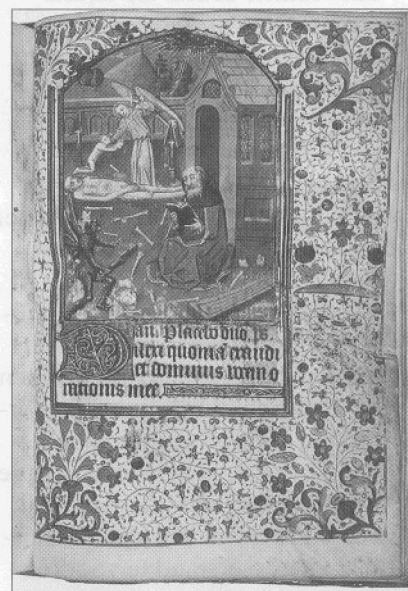 añ. Placebo dño. ps
Dilexi quoniã exaudi
et dominus vocem o
rationis mee.